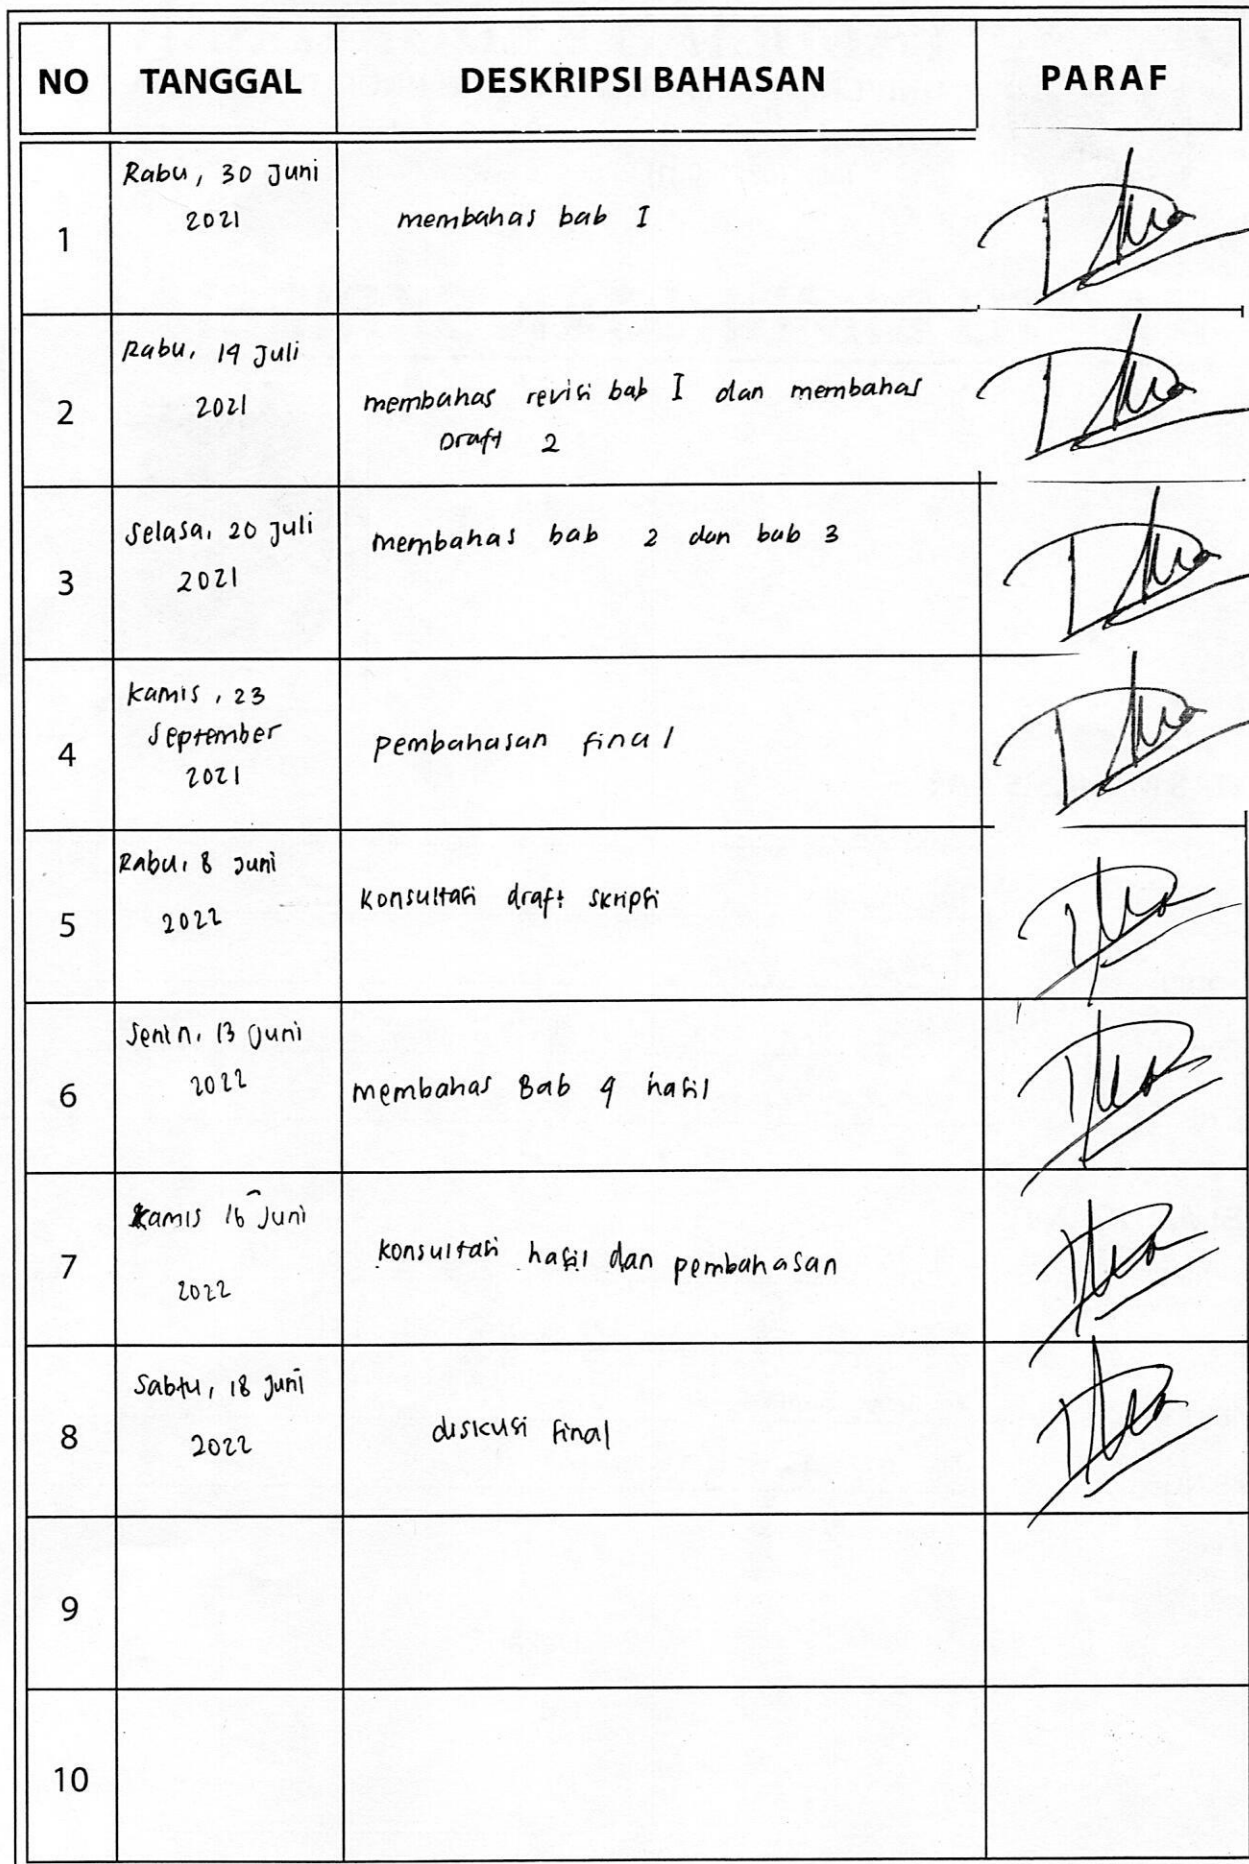 NO TANGGAL DESKRIPSI BAHASAN PARAF
1
Rabu, 30 Juni
2021
membahas bab I
2
Rabu, 14 Juli
2021
membahas revisi bab I dan membahas
Draft 2
3
Selasa, 20 Juli
2021
membahas bab 2 dan bab 3
4
Kamis, 23
September
2021
pembahasan final
5
Rabu, 8 Juni
2022
Konsultasi draft skripsi
6
Senin, 13 Juni
2022
membahas Bab 4 hasil
7
Kamis 16 Juni
2022
konsultasi hasil dan pembahasan
8
Sabtu, 18 Juni
2022
diskusi final
9
10